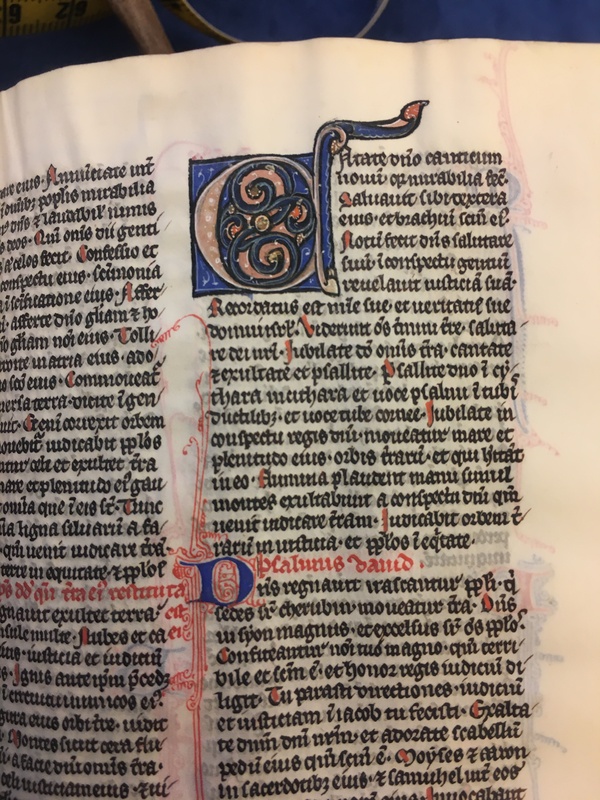 eius. Annūciate int̄
ōnibꝫ poplis mirabilia
dn̄s ⁊ laudabil̓ nimis
deos. Qm̄ om̄s dii genti
celos fecit. Confessio et
conspectu eius. sc̄imonia
ī sc̄ificatione eius. Affer
afferte dn̄o gl̄iam ⁊ ho
gl̄iam noī eius. Tolli
in atria eius. ado
sc̄o eius. Commoueat̄
terra. dicite ī gen
correxit orbem
iudicabit pp̄los
celi et exultet t̄ra
mare et plenitudo ei᷒ gau
omia que ī eis st̄. Tunc
ligna siluarū a fa
qm̄ uenit iudicare t̄rā.
terre in equitate ⁊ pp̄los
dd̄ qn̄ t̄ra ei᷒ restituta
exultet terra. est
multe. Nubes et ca ei᷒
iusticia et iudiciū
Ignis ante ip̄m p̄cedꝫ
ī circuitu inimicos ei᷒
eius orbi t̄re. uidit
Montes sicut cera flu
a facie dn̄i om̄is t̄ra.
celi iusticiam eius. ⁊ ui
CAntate dn̄o canticum
nouū. qꝛ mirabilia fec̄.
Saluauit sibi dextera
eius. et brachiū sc̄m ei᷒.
Notū fecit dn̄s salutare
suū. ī conspectu gentiū
reuelauit iusticiā suā.
Recordatus est mīe sue. et ueritatis sue
domui isrl̄. Viderunt om̄s t̄mini t̄re. saluta
re dei nr̄i. Iubilate dō om̄is t̄ra. cantate
⁊ exultate et psallite. Psallite dn̄o ī cy
thara in cithara et uoce psalmi ī tubis
ductilibꝫ. et uoce tube cornee. Iubilate in
conspectu regis dn̄i. moueatur mare et
plenitudo eius. orbis t̄rarū. et qui hītāt
in eo. Flumina plaudent manu simul
montes exultabunt a conspectu dn̄i qm̄
uenit iudicare t̄ram. Iudicabit orbem t̄
rarū in iusticia. et pp̄los ī eq̄tate.
psalmus dauid.
Dn̄s regnauit irascantur pp̄li. q̄
sedes sr̄ cherubin moueatur t̄ra. Dn̄s
in syon magnus. et excelsus sr̄ om̄s pp̄los.
Confiteantur noī tuo magno. qm̄ terri
bile et sc̄m ē. et honor regis iudiciū di
ligit. Tu parasti directiones. iudiciū
et iusticiam ī iacob tu fecisti. Exalta
te dn̄m dm̄ nr̄m. et adorate scabellū
pedū eius qm̄ sc̄m ē. Moyses ⁊ aaron
in sacerdotibꝫ eius. ⁊ samuhel int̄ eos